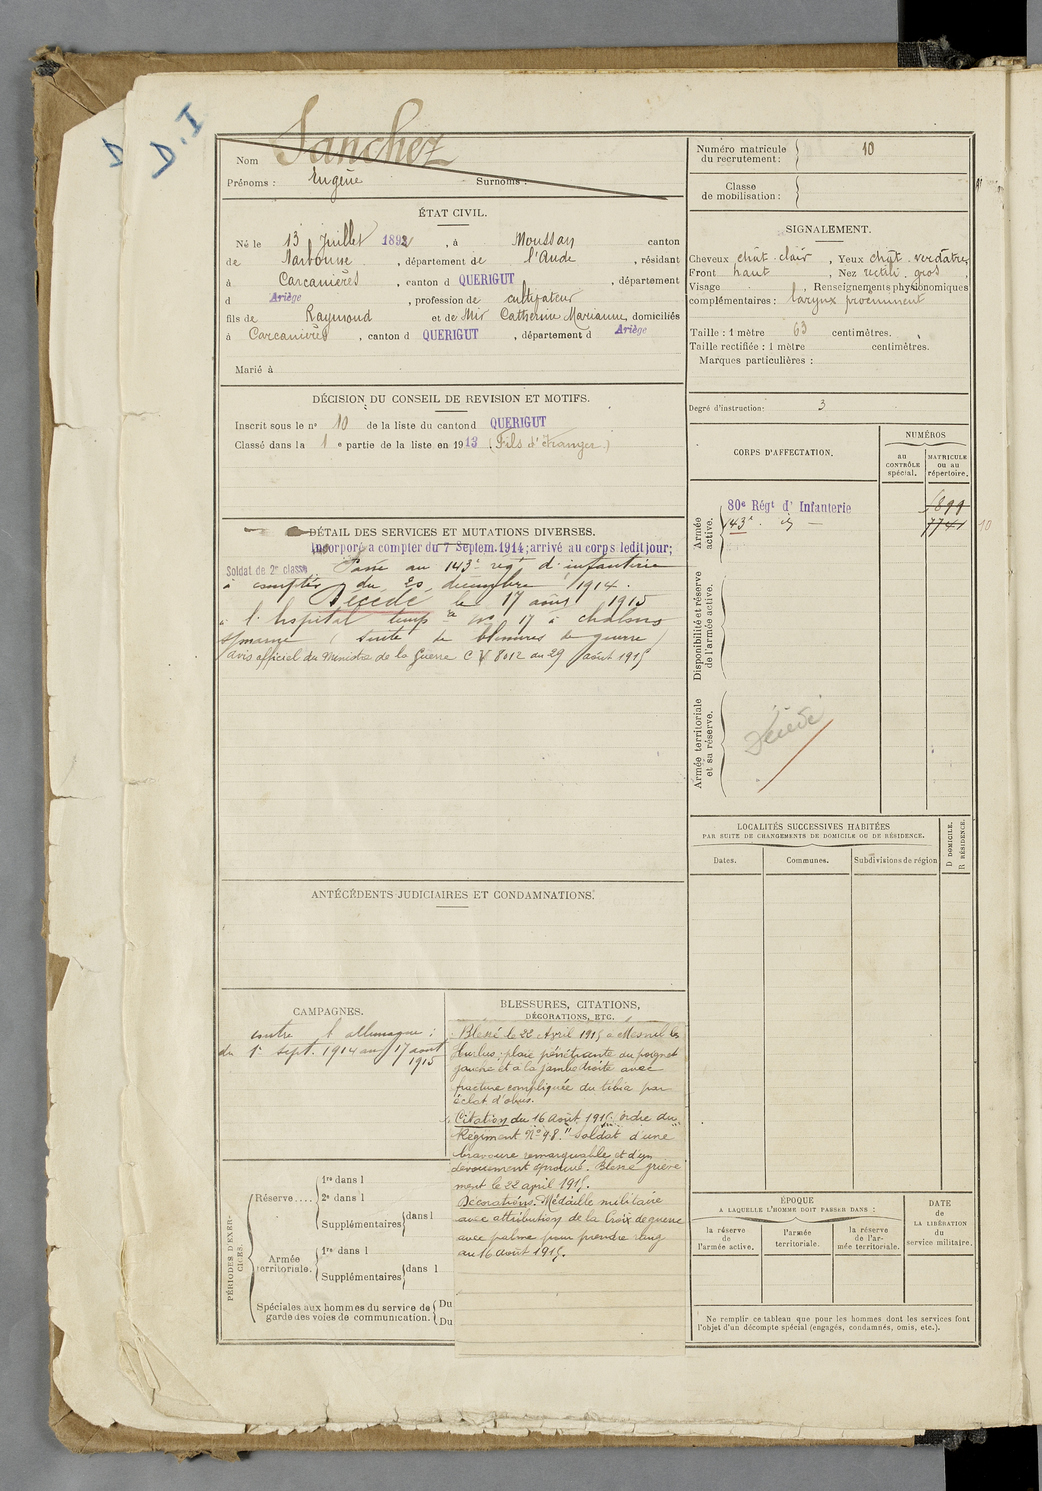 D
D.I
Nom Sanchez
Prénoms : Eugène Surnoms :
ÉTAT CIVIL.
Né le 13 Juillet 1892, à Moussan canton
de Narbonne, département de l'Aude, résidant
à Carcanières, canton d QUERIGUT, département
d Ariège, profession de cultivateur
fils de Raymond et de Mir Catherine Marianne, domiciliés
à Carcanières, canton d QUERIGUT, département d Ariège
Marié à
DÉCISION DU CONSEIL DE REVISION ET MOTIFS.
Inscrit sous le n° 10 de la liste du canton d QUERIGUT
Classé dans la 1e partie de la liste en 1913 (Fils d'étranger)
DÉTAIL DES SERVICES ET MUTATIONS DIVERSES.
Incorporé a compter du 7 Septem. 1914; arrivé au corps ledit jour;
Soldat de 2e classe Passé au 143e régt d'infanterie
à compter du 20 décembre 1914.
Décédé le 17 août 1915
à l'hopital temp.re no 17 à chalons
s/marne (suite de blessures de guerre)
(avis officiel du Ministre de la Guerre C V 8012 du 29 août 1915
ANTÉCÉDENTS JUDICIAIRES ET CONDAMNATIONS.
CAMPAGNES.
contre l'allemagne :
du 1er sept. 1914 au 17 août
1915
BLESSURES, CITATIONS,
DÉCORATIONS, ETC.
Blessé le 22 Avril 1915 à Mesnil les
Hurlus; plaie pénétrante du poignet
gauche et à la jambe droite avec
fracture compliquée du tibia par
éclat d'obus.
Citation du 16 Août 1915. ordre du
Régiment N° 98. "Soldat d'une
bravoure remarquable et d'un
dévouement éprouvé. Blessé griève
ment le 22 april 1915.
Décorations. Médaille militaire
avec attribution de la Croix de guerre
avec palme pour prendre rang
au 16 août 1915.
PÉRIODES D'EXER-
CICES.
Réserve....
1re dans l
2e dans l
Supplémentaires dans l
Armée
territoriale.
1re dans l
Supplémentaires dans l
Spéciales aux hommes du service de
garde des voies de communication.
Du
Du
Numéro matricule
du recrutement : 10
Classe
de mobilisation :
SIGNALEMENT.
Cheveux chât. clair, Yeux chât. verdâtres
Front haut, Nez rectil. gros,
Visage, Renseignements physionomiques
complémentaires : larynx proéminent
Taille : 1 mètre 63 centimètres.
Taille rectifiée : 1 mètre centimètres.
Marques particulières :
Degré d'instruction : 3
CORPS D'AFFECTATION.
NUMÉROS
au
CONTRÔLE
spécial.
MATRICULE
ou au
répertoire.
Armée
active.
80e Régt d'Infanterie 6899
143e. dº — 7741 10
Disponibilité et réserve
de l'armée active.
Armée territoriale
et sa réserve.
Décédé
LOCALITÉS SUCCESSIVES HABITÉES
PAR SUITE DE CHANGEMENTS DE DOMICILE OU DE RÉSIDENCE.
D DOMICILE.
R RÉSIDENCE.
Dates. Communes. Subdivisions de région
ÉPOQUE
A LAQUELLE L'HOMME DOIT PASSER DANS :
la réserve
de
l'armée active.
l'armée
territoriale.
la réserve
de l'ar-
mée territoriale.
DATE
de
LA LIBÉRATION
du
service militaire.
Ne remplir ce tableau que pour les hommes dont les services font
l'objet d'un décompte spécial (engagés, condamnés, omis, etc.).